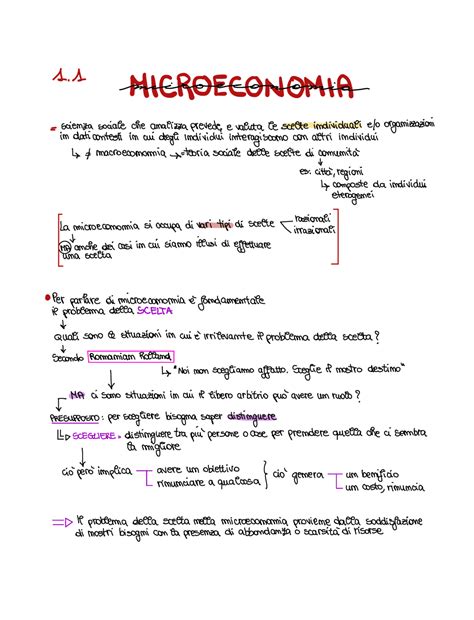 1.1 MICROECONOMIA
= scienza sociale che analizza, prevede e valuta le scelte individuali e/o organizzazioni
in dati contesti in cui degli individui interagiscono con altri individui
↳ ≠ macroeconomia → = teoria sociale delle scelte di comunità
↓
es. città, regioni
↳ composte da individui
eterogenei
La microeconomia si occupa di vari tipi di scelte < razionali
irrazionali
MA anche dei casi in cui siamo illusi di effettuare
una scelta
• Per parlare di microeconomia è fondamentale
il problema della SCELTA
↓
Quali sono le situazioni in cui è irrilevante il problema della scelta?
↓
Secondo Romain Rolland
↳ "Noi non scegliamo affatto. Sceglie il nostro destino"
MA ci sono situazioni in cui il libero arbitrio può avere un ruolo?
PRESUPPOSTO: per scegliere bisogna saper distinguere
↳ SCEGLIERE = distinguere tra più persone o cose per prendere quella che ci sembra
la migliore
ciò però implica avere un obiettivo
rinunciare a qualcosa } ciò genera un beneficio
un costo, rinuncia
⇒ Il problema della scelta nella microeconomia proviene dalla soddisfazione
di nostri bisogni con la presenza di abbondanza o scarsità di risorse